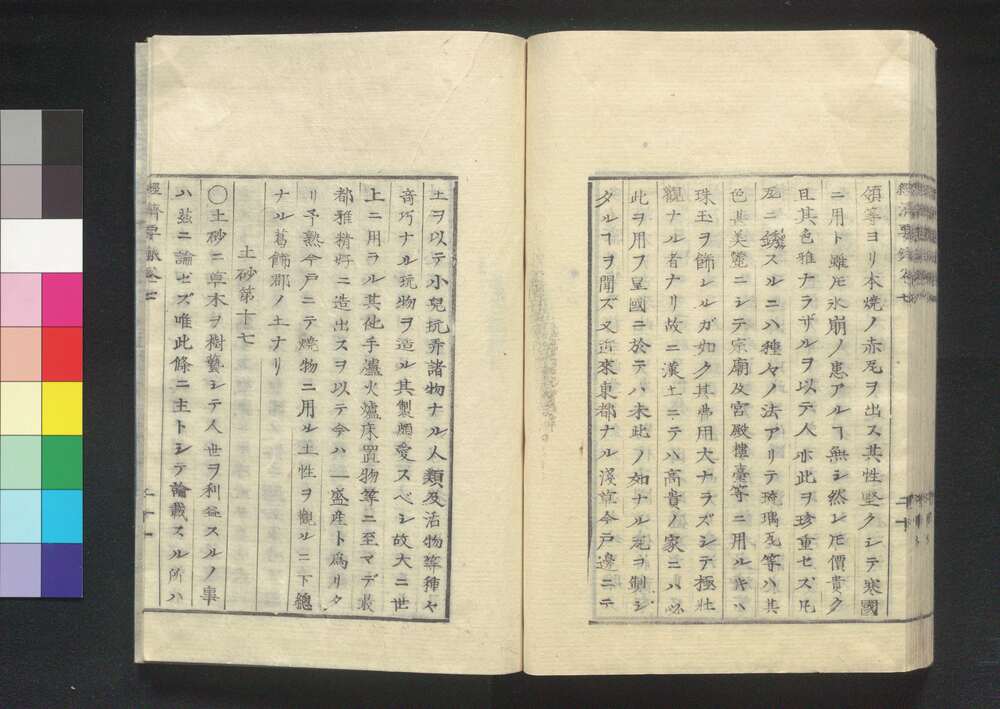 經濟要錄卷七
二十
領等ヨリ本焼ノ赤瓦ヲ出ス其性堅クシテ寒國
ニ用ト雖𪜈氷崩ノ患アルヿ無シ然レ𪜈價貴ク
且其色雅ナラザルヲ以テ人亦此ヲ珍重セズ凡
瓦ニ銹スルニハ種々ノ法アリテ琉璃瓦等ハ其
色甚美麗ニシテ宗廟及宮殿樓臺等ニ用ルキハ
珠玉ヲ飾レルガ如ク其費用大ナラズシテ極壯
觀ナル者ナリ故ニ漢土ニテハ高貴ノ家ニハ必
此ヲ用フ皇國ニ於テハ未此ノ如ナル瓦ヲ製シ
タルヿヲ聞ズ又近來東都ナル淺草今戸邊ニテ
土ヲ以テ小兒玩弄諸物ナル人類及活物等種々
奇巧ナル玩物ヲ造ル其製頗愛スベシ故大ニ世
上ニ用ラル其他手爐火爐床置物等ニ至マデ最
都雅精好ニ造出スヲ以テ今ハ一盛産ト爲リタ
リ予熟今戸ニテ燒物ニ用ル土性ヲ觀ルニ下總
ナル葛飾郡ノ土ナリ
土砂第十七
〇土砂ニ草木ヲ樹藝シテ人世ヲ利益スルノ事
ハ玆ニ論ゼズ唯此條ニ主トシテ論載スル所ハ
經濟要錄卷七